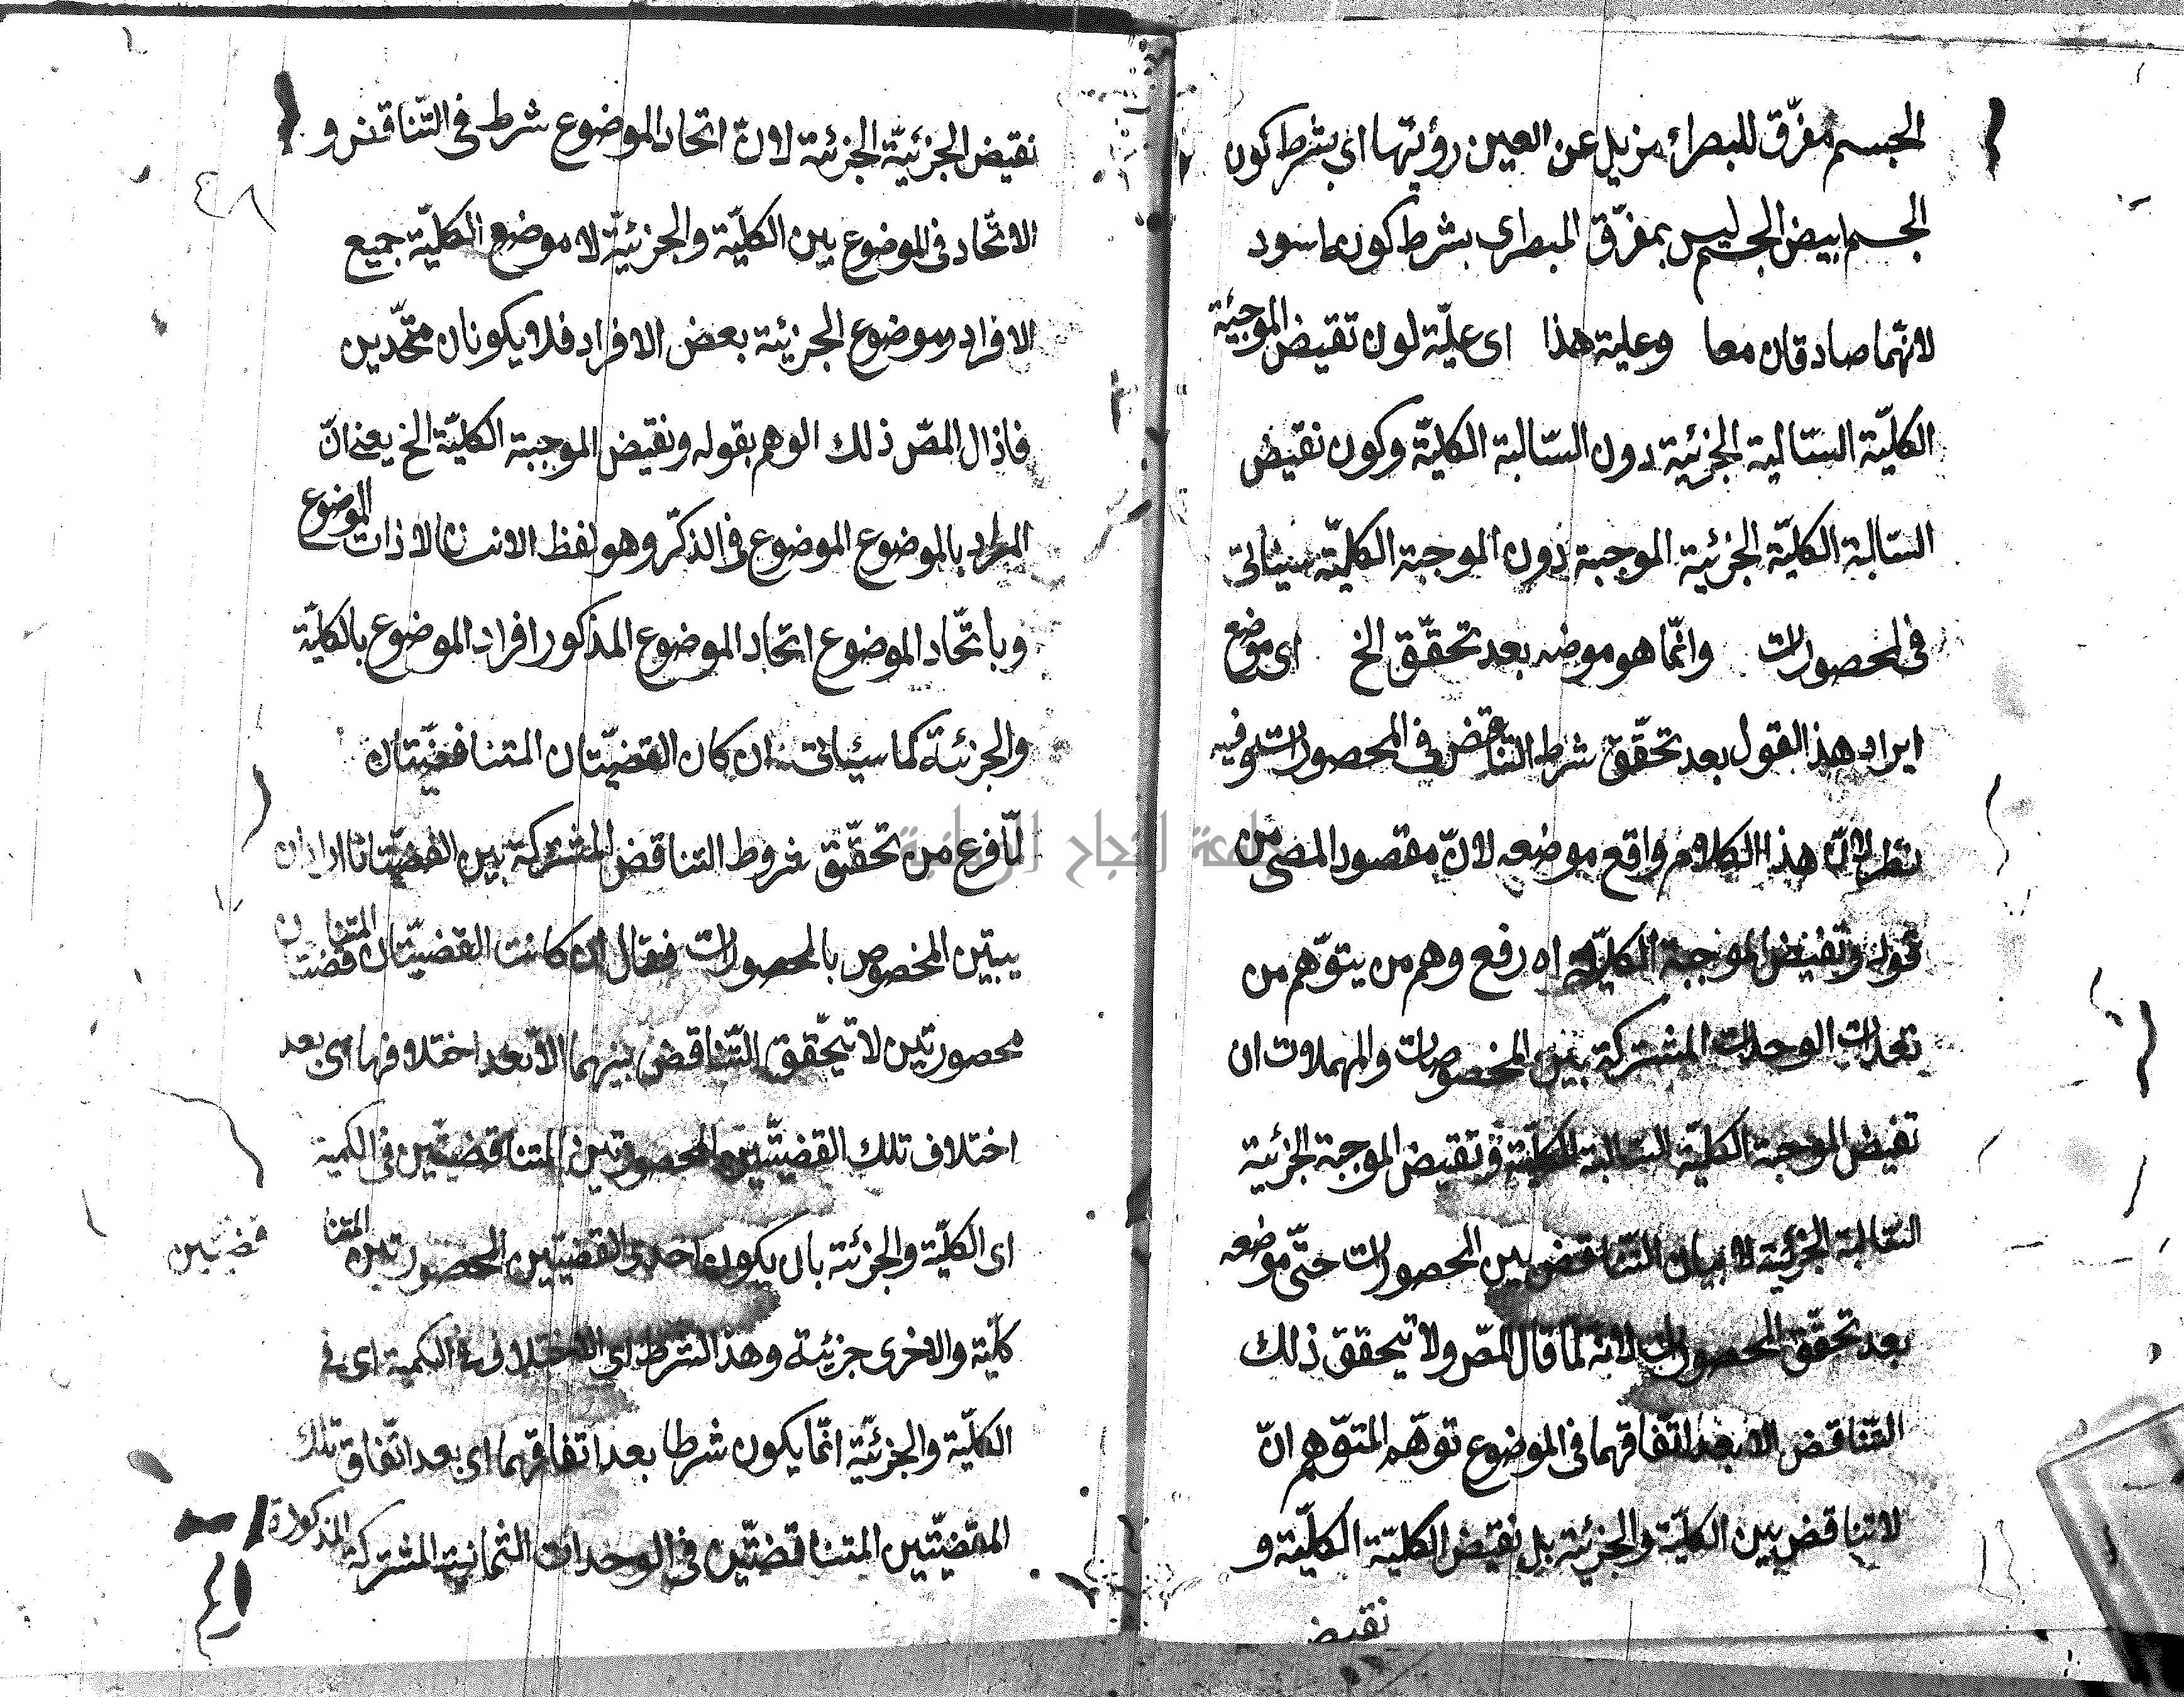 الجسم مفرّق للبصر اى مزيل عن العين رؤيتها اى بشرط كون
الجسم ابيض الجسم ليس بمفرّق المبصر اى بشرط كونها اسود
لانّهما صادقان معا وعلية هذا اى علّية لون تقيض الموجبة
الكلّية السّالبة الجزئية دون السّالبة الكليّة وكون نقيض
السّالبة الكليّة الجزئية الموجبة دون الموجبة الكليّة سيأتى
فى المحصورات وانّما هو موضه بعد تحقّق الخ اى موضع
ايراد هذا القول بعد تحقّق شرط التناقض فى المحصورات وفيه
نظر لانّ هذا الكلام واقع موضعه لانّ مقصود المص من
قوله ونقيض الموجبة الكليّة اه رفع وهم من يتوّهم من
تعداد الوحدات المشتركة بين المخصوصات والمهملات ان
نقيض الموجبة الكليّة السالبة الكليّة ونقيض الموجبة الجزئية
السّالبة الجزئية لا بيان التّناقض بين المحصورات حتّى موضعه
بعد تحقّق المحصورات لانّه لمّا قال المصّ ولا تيحقق ذلك
التّناقض الا بعد اتّفاقهما فى الموضوع توهّم المتوّهم انّ
لا تناقض بين الكليّة والجزئية بل نقيض الكليّة الكلّية و
نقيض
نقيض الجزئيّة الجزئية لانّ اتحاد الموضوع شرط فى التّناقض و
الاتّحاد فى الموضوع بين الكليّة والجزئيّة لا موضع الكليّة جميع
الافراد وموضوع الجزئية بعض الافراد فلا يكونان متّحدين
فاذال المصّ ذلك الوهم بقوله ونقيض الموجبة الكليّة الخ يعنى انّ
المراد بالموضوع الموضوع فى الذكر وهو لفظ الانسان لا ذات الموضوع
وباتّحاد الموضوع اتحاد الموضوع المذكور افراد الموضوع بالكليّة
والجزئية كما سيأتى ان كان القضيّتان المتنافضيّتان
لمّا فرغ من تحقّيق شروط التناقض المشتركة بين القضيّتان اراد ان
يبيّن المخصوص بالمحصورات فقال ان كانت القضيّتان المتنا قضتان
محصورتين لا تيحّقق التّناقض بينهما الا بعد اختلافهما اى بعد
اختلاف تلك القضيتّين المحصورتين المتناقضيّين فى الكمية
اى الكليّة والجزئية بان يكون احدى القضيتين المحصورتين المتنا قضيين
كليّة والاخرى جزئية وهذا الشرط اى الاختلاف فى الكمية اى فى
الكليّة والجزئيّة انمّا يكون شرطا بعد اتفاقهما اى بعد اتّفاق تلك
المقضيّتين المتناقضتّين فى الوحدات الثمانية المشتركة المذكورة
٤٨
جامعة النجاح الوطنية